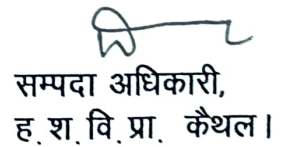 सम्पदा अधिकारी,
ह. श. वि. प्रा. कैथल।